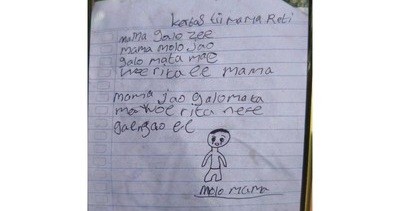 kertas tii mama Roti
mama galo zee
mama molo jao
galo mata mae
woe rita ee mama
mama jao galo mata
woe rita nee
ee
molo mama